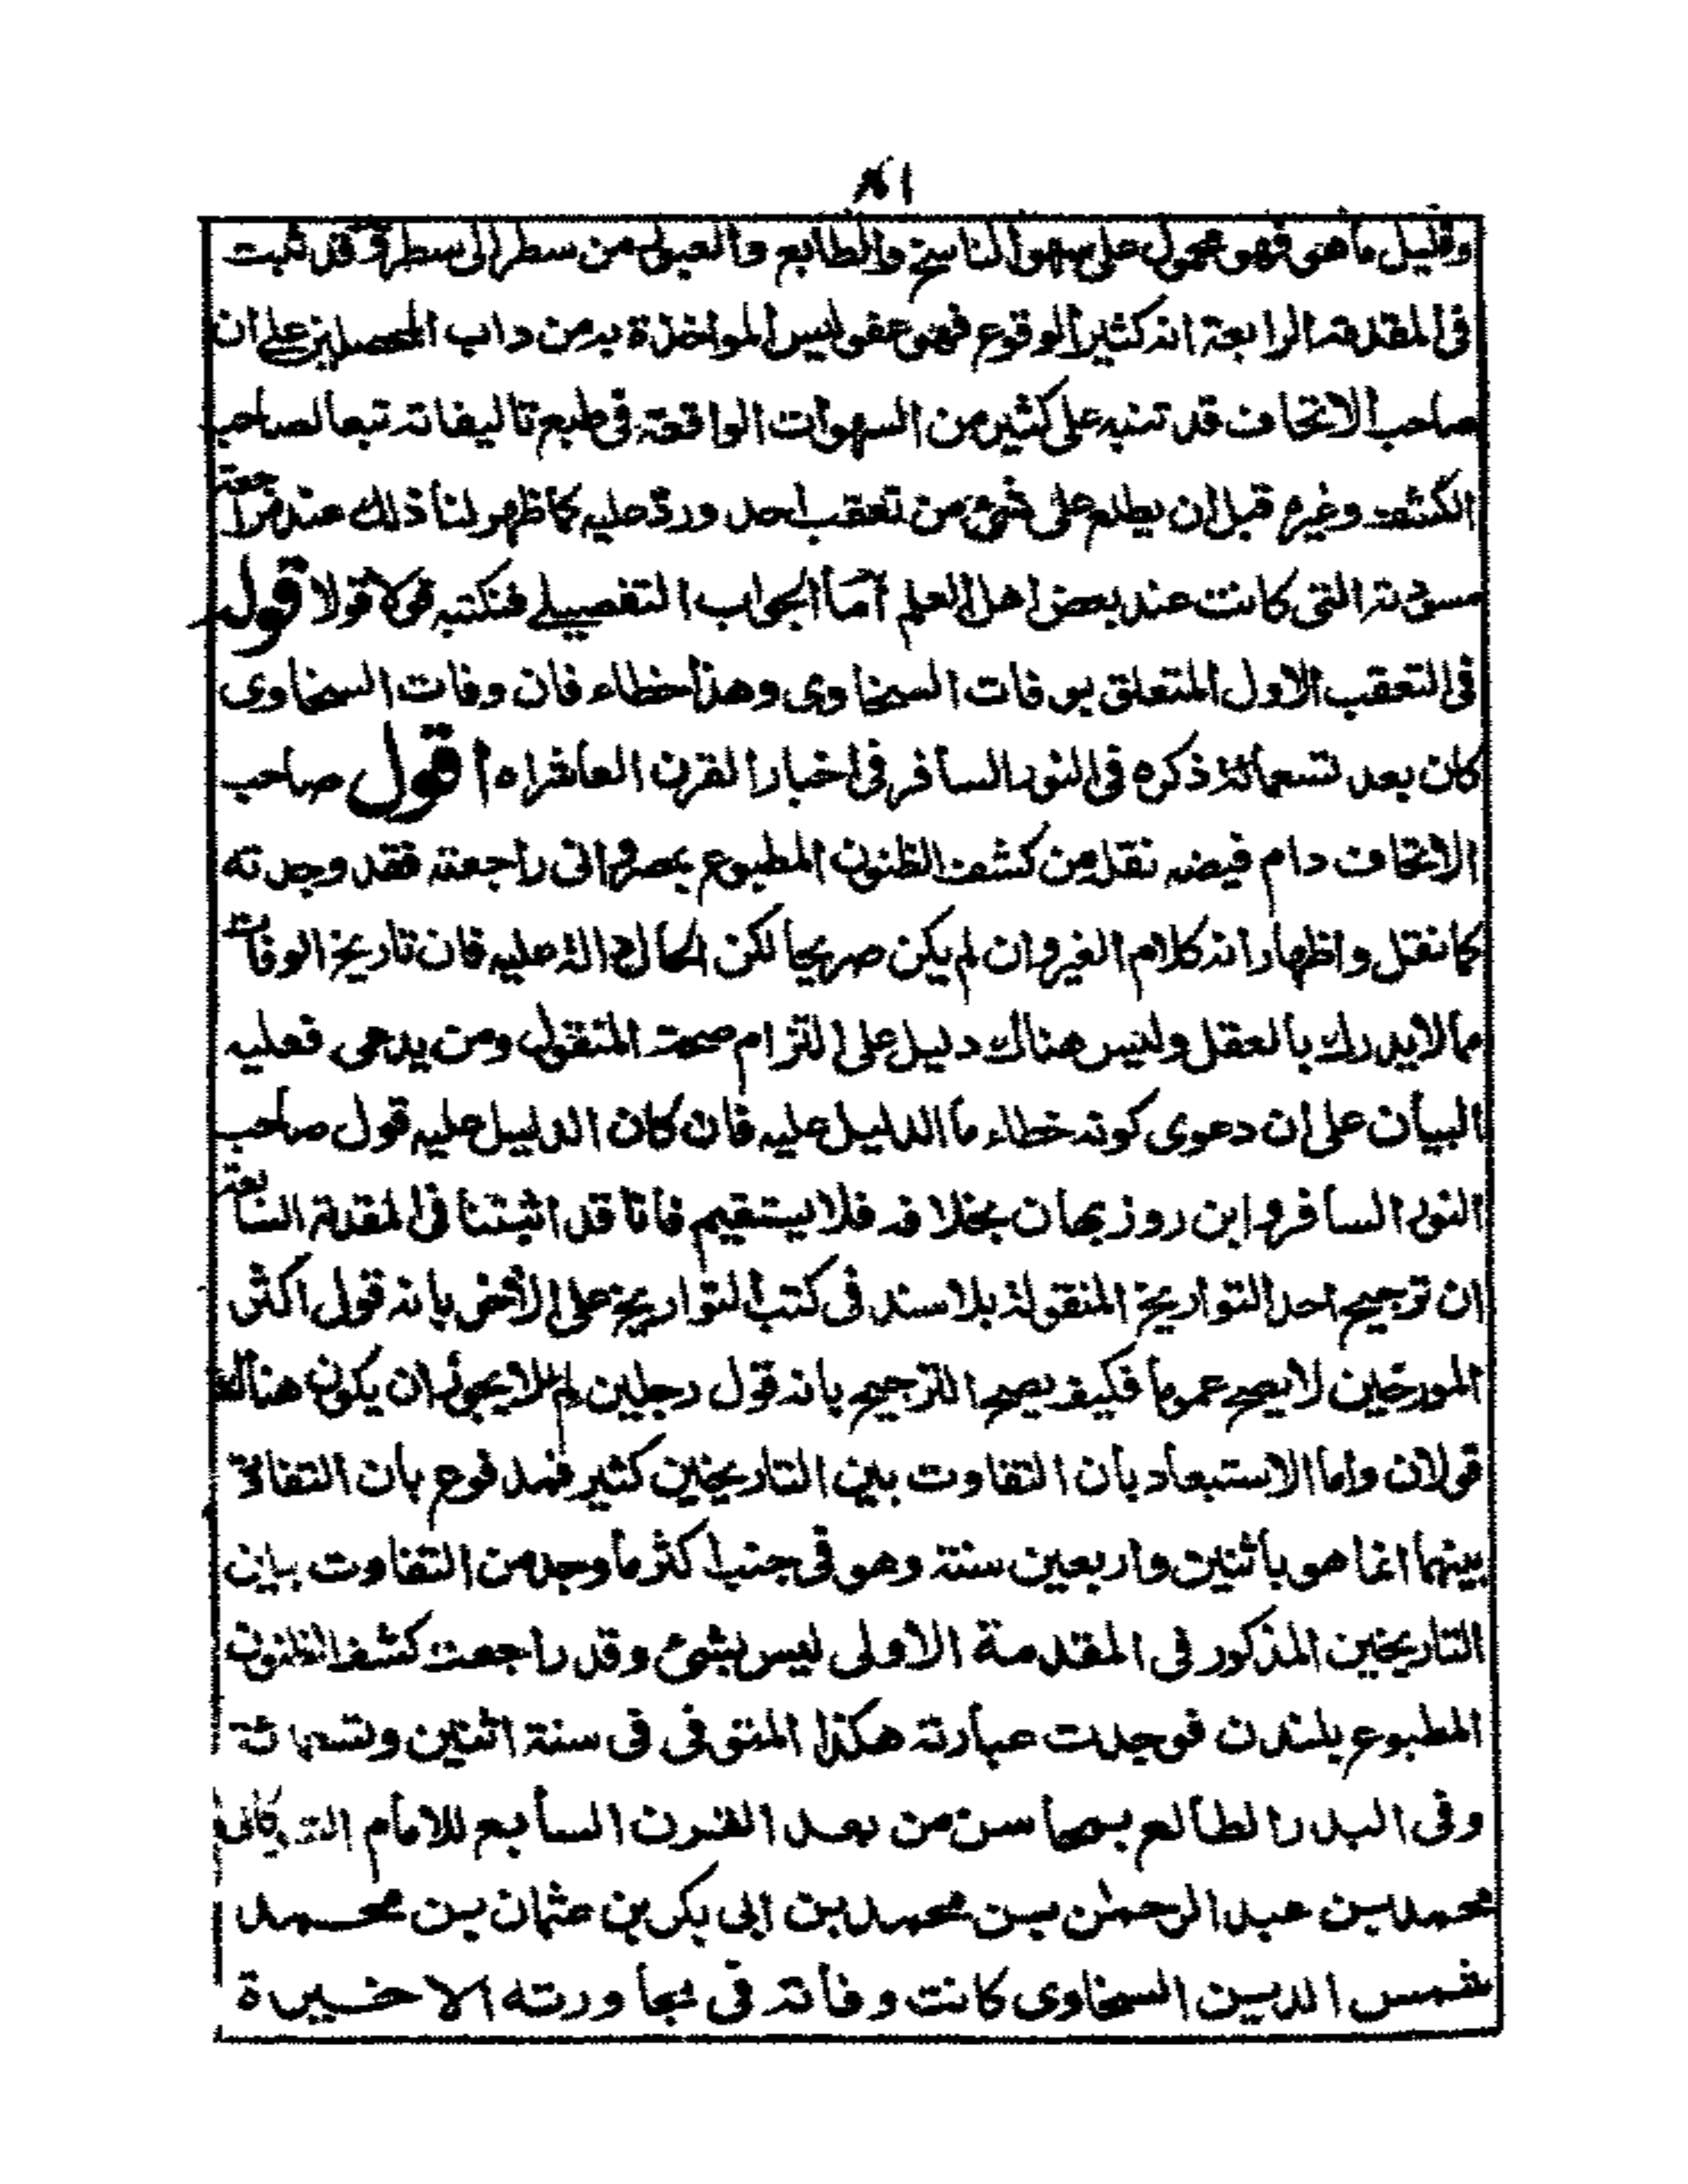 وقليل ماهو فهو محمول على سهو الناسخ والطابع والعبور من سطر الى سطر وقد ثبت
فى المقدمة الرابعة انه كثير الوقوع فهو عفو وليس المواخذة به من داب المحصلين على ان
صاحب الاتحاف قد تنبه على كثير من السهوات الواقعة فى طبع تاليفاته تبعا لصاحب
الكشف وغيره قبل ان يطلع على شئ من تعقب احد ورده عليه كما ظهر لنا ذلك عند مراجعة
مسودته التى كانت عند بعض اهل العلم اما الجواب التفصيلے فنكتبه قولا قولا قوله
فى التعقب الاول المتعلق بوفات السخاوى وهذا خطاء فان وفات السخاوى
كان بعد تسعمائة ذكره فى النور السافر فى اخبار القرن العاشر اه أقول صاحب
الاتحاف دام فيضه نقل من كشف الظنون المطبوع بمصر وانى راجعته فقد وجدته
كما نقل واظهار انه كلام الغير وان لم يكن صريحا لكن الحال دالة عليه فان تاريخ الوفات
مما لا يدرك بالعقل وليس هناك دليل على التزام صحة المنقول ومن يدعى فعليه
البيان على ان دعوى كونه خطاء ما الدليل عليه فان كان الدليل عليه قول صاحب
النور السافر وابن روزبهان بخلافه فلا يستقيم فانا قد اثبتنا فى المقدمة السابعة
ان ترجيح احد التواريخ المنقولة بلا سند فى كتب التواريخ على الأخر بانه قول اكثر
المورخين لا يصح عموما فكيف يصح الترجيح بانه قول رجلين لم لا يجوز ان يكون هناك
قولان واما الاستبعاد بأن التفاوت بين التاريخين كثير فمدفوع بان التفاوت
بينهما انما هو باثنين واربعين سنة وهو فى جنب اكثر ما وجد من التفاوت بين
التاريخين المذكور فى المقدمة الاولى ليس بشئ وقد راجعت كشف الظنون
المطبوع بلندن فوجدت عبارته هكذا المتوفى فى سنة اثنين وتسعمائة
وفى البدر الطالع بمحاسن من بعد القرن السابع للامام الشوكانى
محمد بن عبد الرحمٰن بن محمد بن ابى بكر بن عثمان بن محمد
شمس الدين السخاوى كانت وفاته فى مجاورته الاخيرة